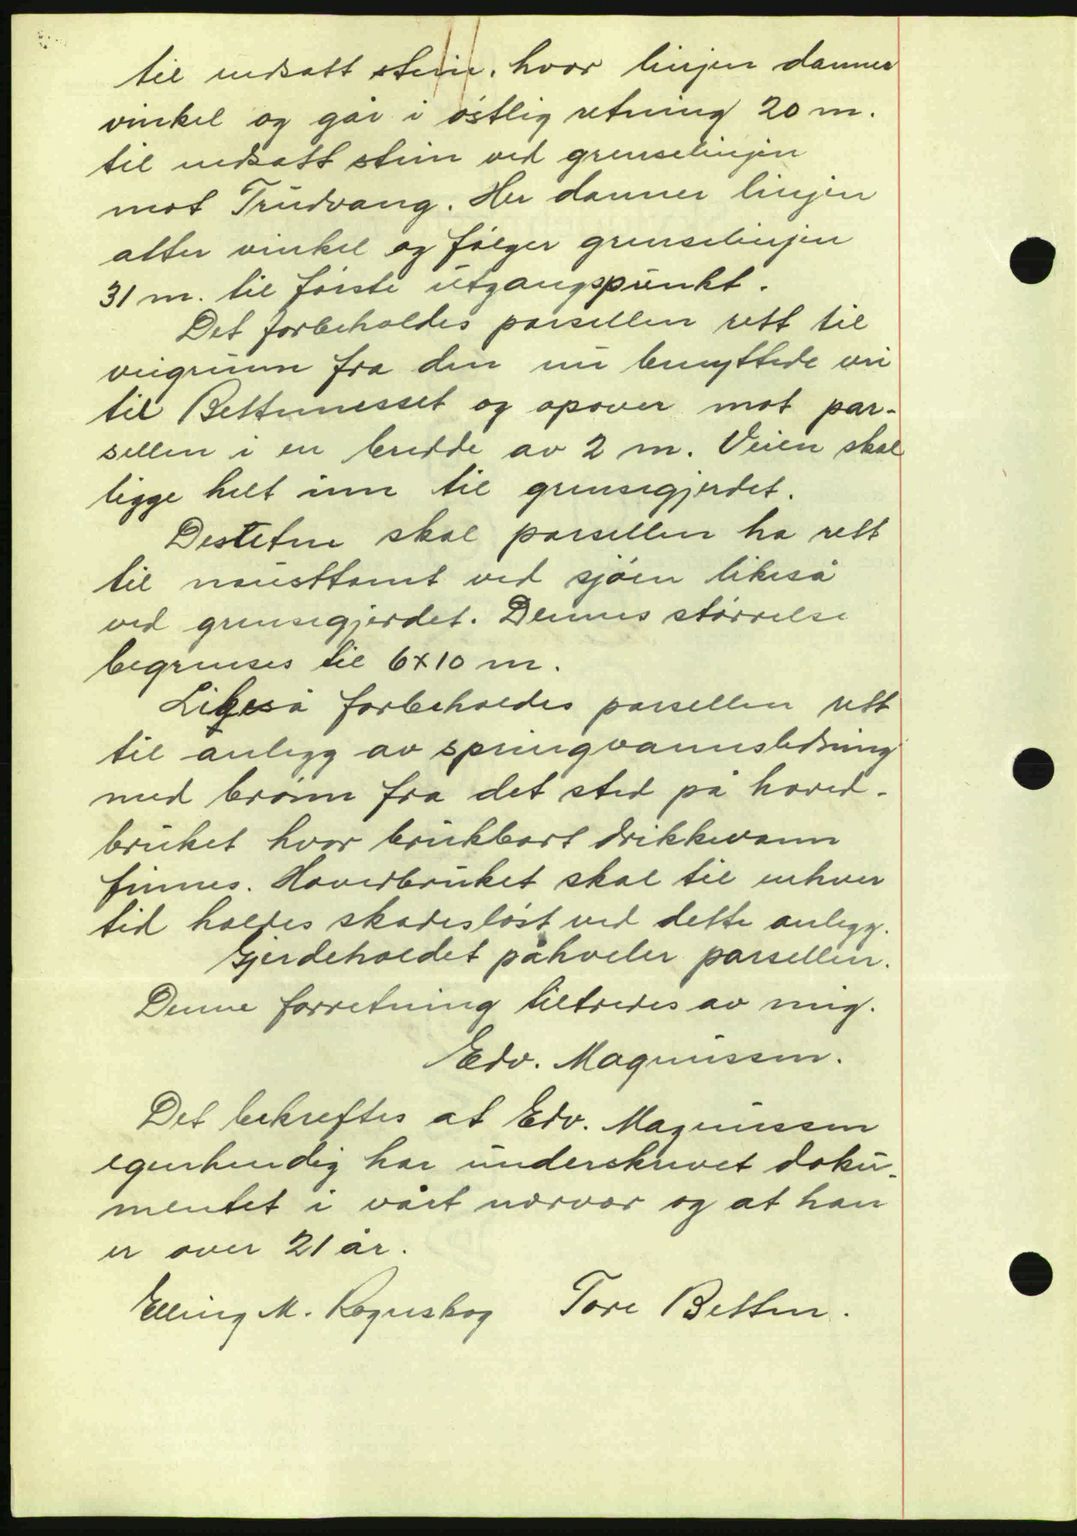 til nedsatt stein, hvor linjen danner
vinkel og går i østlig retning 20 m.
til nedsatt stein ved grenselinjen
mot Trudvang. Her danner linjen
atter vinkel og følger grenselinjen
31 m. til første utgangspunkt.
Det forbeholdes parsellen rett til
veigrunn fra den nu benyttede vei
til Bettenneset og opover mot par-
sellen i en bredde av 2 m. Veien skal
ligge helt inn til grensegjerdet.
Desuten skal parsellen ha rett
til nausttomt ved sjøen likeså
ved grensegjerdet. Dennes størrelse
begrenses til 6x10 m.
Likeså forbeholdes parsellen rett
til anlegg av springvannsledning
med brønn fra det sted på hoved-
bruket hvor brukbart drikkevann
finnes. Hovedbruket skal til enhver
tid holdes skadesløst ved dette anlegg.
Gjerdeholdet påhviler parsellen.
Denne forretning tiltredes av mig.
Edv. Magnussen.
Det bekreftes at Edv. Magnussen
egenhendig har underskrevet doku-
mentet i vårt nærvær og at han
er over 21 år.
Elling M. Rognskog Tore Betten.